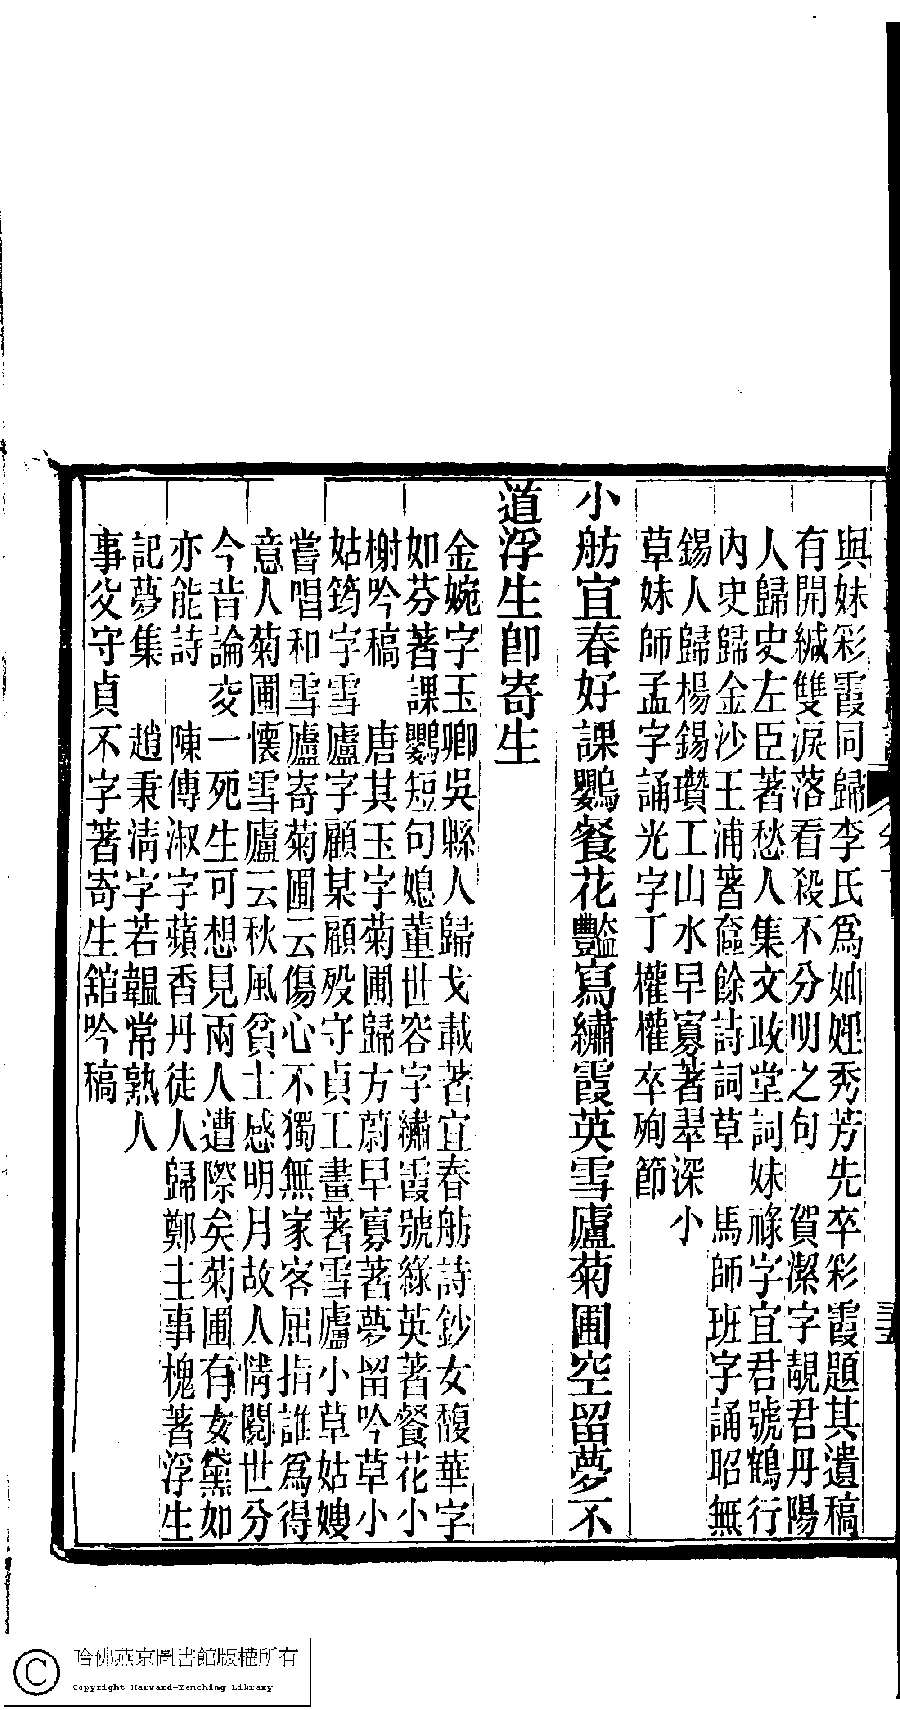 與妹彩霞同歸李氏爲妯娌秀芳先卒彩霞題其遺稿
有開緘雙淚落看殺不分明之句　賀潔字靚君丹陽
人歸史左臣著愁人集文政堂詞妹祿字宜君號鶴行
內史歸金沙王浦著窳餘詩詞草　馬師班字誦昭無
錫人歸楊錫瓚工山水早寡著翠深小
草妹師孟字誦光字丁權權卒殉節
小舫宜春好課鸚餐花豔寫繡霞英雪廬菊圃空留夢不
道浮生卽寄生
金婉字玉卿吳縣人歸戈載著宜春舫詩鈔女馥華字
如芬著課鸚短句媳董世容字繡霞號綠英著餐花小
榭吟稿　唐其玉字菊圃歸方蔚早寡著夢留吟草小
姑筠字雪廬字顧某顧歿守貞工畫著雪廬小草姑嫂
嘗唱和雪廬寄菊圃云傷心不獨無家客屈指誰爲得
意人菊圃懷雪廬云秋風貧士感明月故人情閱世分
今昔論交一死生可想見兩人遭際矣菊圃有女黛如
亦能詩　陳傳淑字蘋香丹徒人歸鄭主事槐著浮生
記夢集　趙秉淸字若韞常熟人
事父守貞不字著寄生館吟稿
三五
哈佛燕京圖書館版權所有
Copyright Harvard-Yenching Library